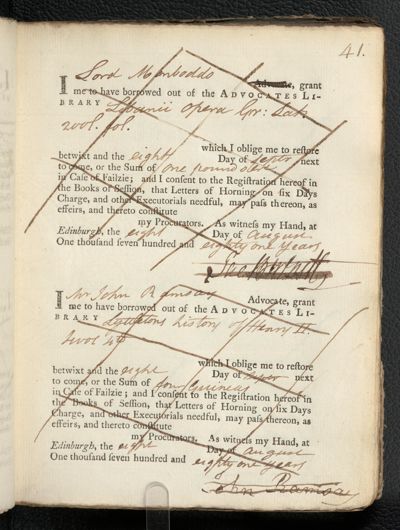 41.
I Lord Monboddo Advocate, grant
me to have borrowed out of the ADVOCATES LI-
BRARY Libanii opera Gr: Lat:
2 vol. fol.
which I oblige me to restore
betwixt and the eight Day of next
to come, or the Sum of One pound ster
in Case of Failzie; and I consent to the Registration hereof in
the Books of Session, that Letters of Horning on six Days
Charge, and other Executorials needful, may pass thereon, as
effeirs, and thereto constitute
my Procurators. As witness my Hand, at
Edinburgh, the eight Day of August
One thousand seven hundred and eighty one years
I Mr John Ramsay Advocate, grant
me to have borrowed out of the ADVOCATES LI-
BRARY Lyttletons history of Henry II.
4to
which I oblige me to restore
betwixt and the eight Day of next
to come, or the Sum of four Guineas
in Case of Failzie; and I consent to the Registration hereof in
the Books of Session, that Letters of Horning on six Days
Charge, and other Executorials needful, may pass thereon, as
effeirs, and thereto constitute
my Procurators. As witness my Hand, at
Edinburgh, the eight Day of August
One thousand seven hundred and eighty one years
John Ramsay